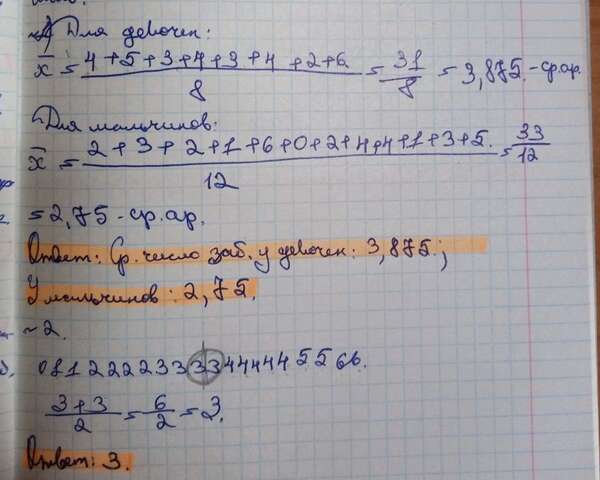 Для девочек:
x̄ = 4+5+3+4+3+4+2+6 / 8 = 31/8 = 3,875 - ср.ар.
Для мальчиков:
x̄ = 2+3+2+1+6+0+2+4+4+1+3+5. / 12 = 33/12
= 2,75 - ср.ар.
Ответ: Ср. число заб. у девочек: 3,875.;
У мальчиков: 2,75.
~2.
0 1 1 2 2 2 2 3 3 3 3 4 4 4 4 4 5 5 6 6.
3+3 / 2 = 6/2 = 3.
Ответ: 3.